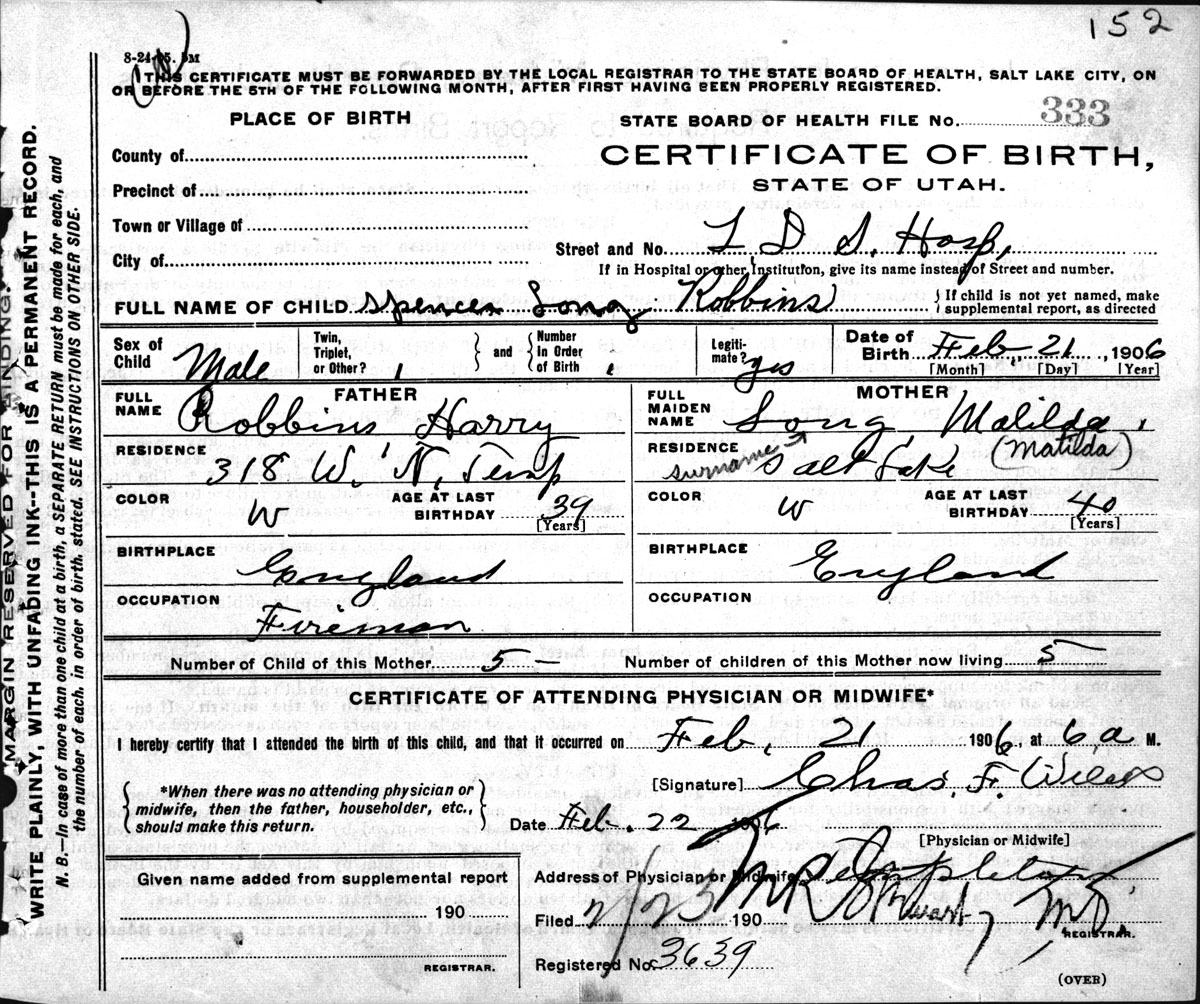 152
8-24-05. 5M
THIS CERTIFICATE MUST BE FORWARDED BY THE LOCAL REGISTRAR TO THE STATE BOARD OF HEALTH, SALT LAKE CITY, ON
OR BEFORE THE 5TH OF THE FOLLOWING MONTH, AFTER FIRST HAVING BEEN PROPERLY REGISTERED.
PLACE OF BIRTH
STATE BOARD OF HEALTH FILE No. 333
County of
CERTIFICATE OF BIRTH,
Precinct of
STATE OF UTAH.
Town or Village of
Street and No. L D S. Hosp,
City of
If in Hospital or other Institution, give its name instead of Street and number.
FULL NAME OF CHILD Spencer Long Robbins } If child is not yet named, make supplemental report, as directed
Sex of Child Male Twin, Triplet, or Other? } and { Number in Order of Birth Legiti-mate? yes Date of Birth Feb. 21, 1906
[Month] [Day] [Year]
FATHER
FULL NAME Robbins Harry
RESIDENCE 318 W. N. Temp
COLOR W AGE AT LAST BIRTHDAY 39 [Years]
BIRTHPLACE England
OCCUPATION Fireman
MOTHER
FULL MAIDEN NAME Long, Malilda.
RESIDENCE surname Salt Lake (Matilda)
COLOR W AGE AT LAST BIRTHDAY 40 [Years]
BIRTHPLACE England
OCCUPATION
Number of Child of this Mother 5 — Number of children of this Mother now living 5 —
CERTIFICATE OF ATTENDING PHYSICIAN OR MIDWIFE*
I hereby certify that I attended the birth of this child, and that it occurred on Feb, 21 1906, at 6 a M.
[Signature] Chas. F. Wilcox
*When there was no attending physician or
midwife, then the father, householder, etc.,
should make this return.
Date Feb. 22 1906
[Physician or Midwife]
Given name added from supplemental report
190
REGISTRAR.
Address of Physician or Midwife Templeton
Filed 2/23 190 M.D.
REGISTRAR.
Registered No. 3639
(OVER)
MARGIN RESERVED FOR BINDING.
WRITE PLAINLY, WITH UNFADING INK--THIS IS A PERMANENT RECORD.
N. B.—In case of more than one child at a birth, a SEPARATE RETURN must be made for each, and
the number of each, in order of birth, stated. SEE INSTRUCTIONS ON OTHER SIDE.